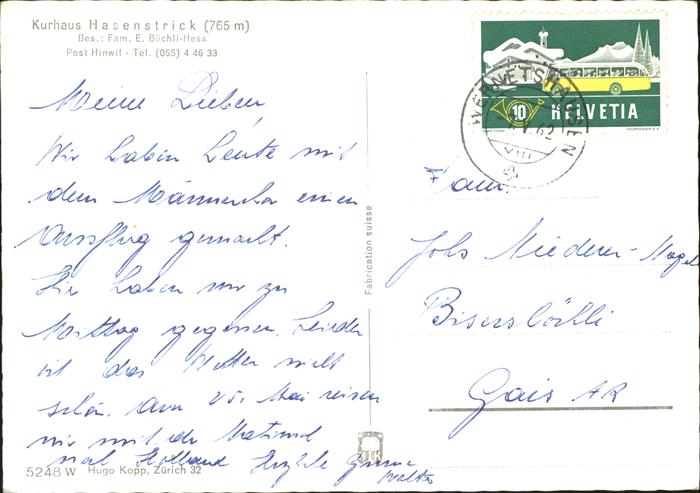 Kurhaus Hasenstrick (765 m)
Bes.: Fam. E. Büchli-Hess
Post Hinwil - Tel. (055) 4 46 33
Meine Lieben,
Wir haben heute mit
dem Männerchor einen
Ausflug gemacht.
Hier haben wir zu
Mittag gegessen. Leider
ist das Wetter nicht
schön. Am 25. Mai reisen
wir mit der
nach Holland Herzliche Grüsse
Walter
5248 W Hugo Kopp, Zürich 32
Fabrication suisse
HELVETIA
10
COURVOISIER S.A.
WERNETSHAUSEN
V. 62
VIII
Fam.
Johs Niederer-
Gais AR